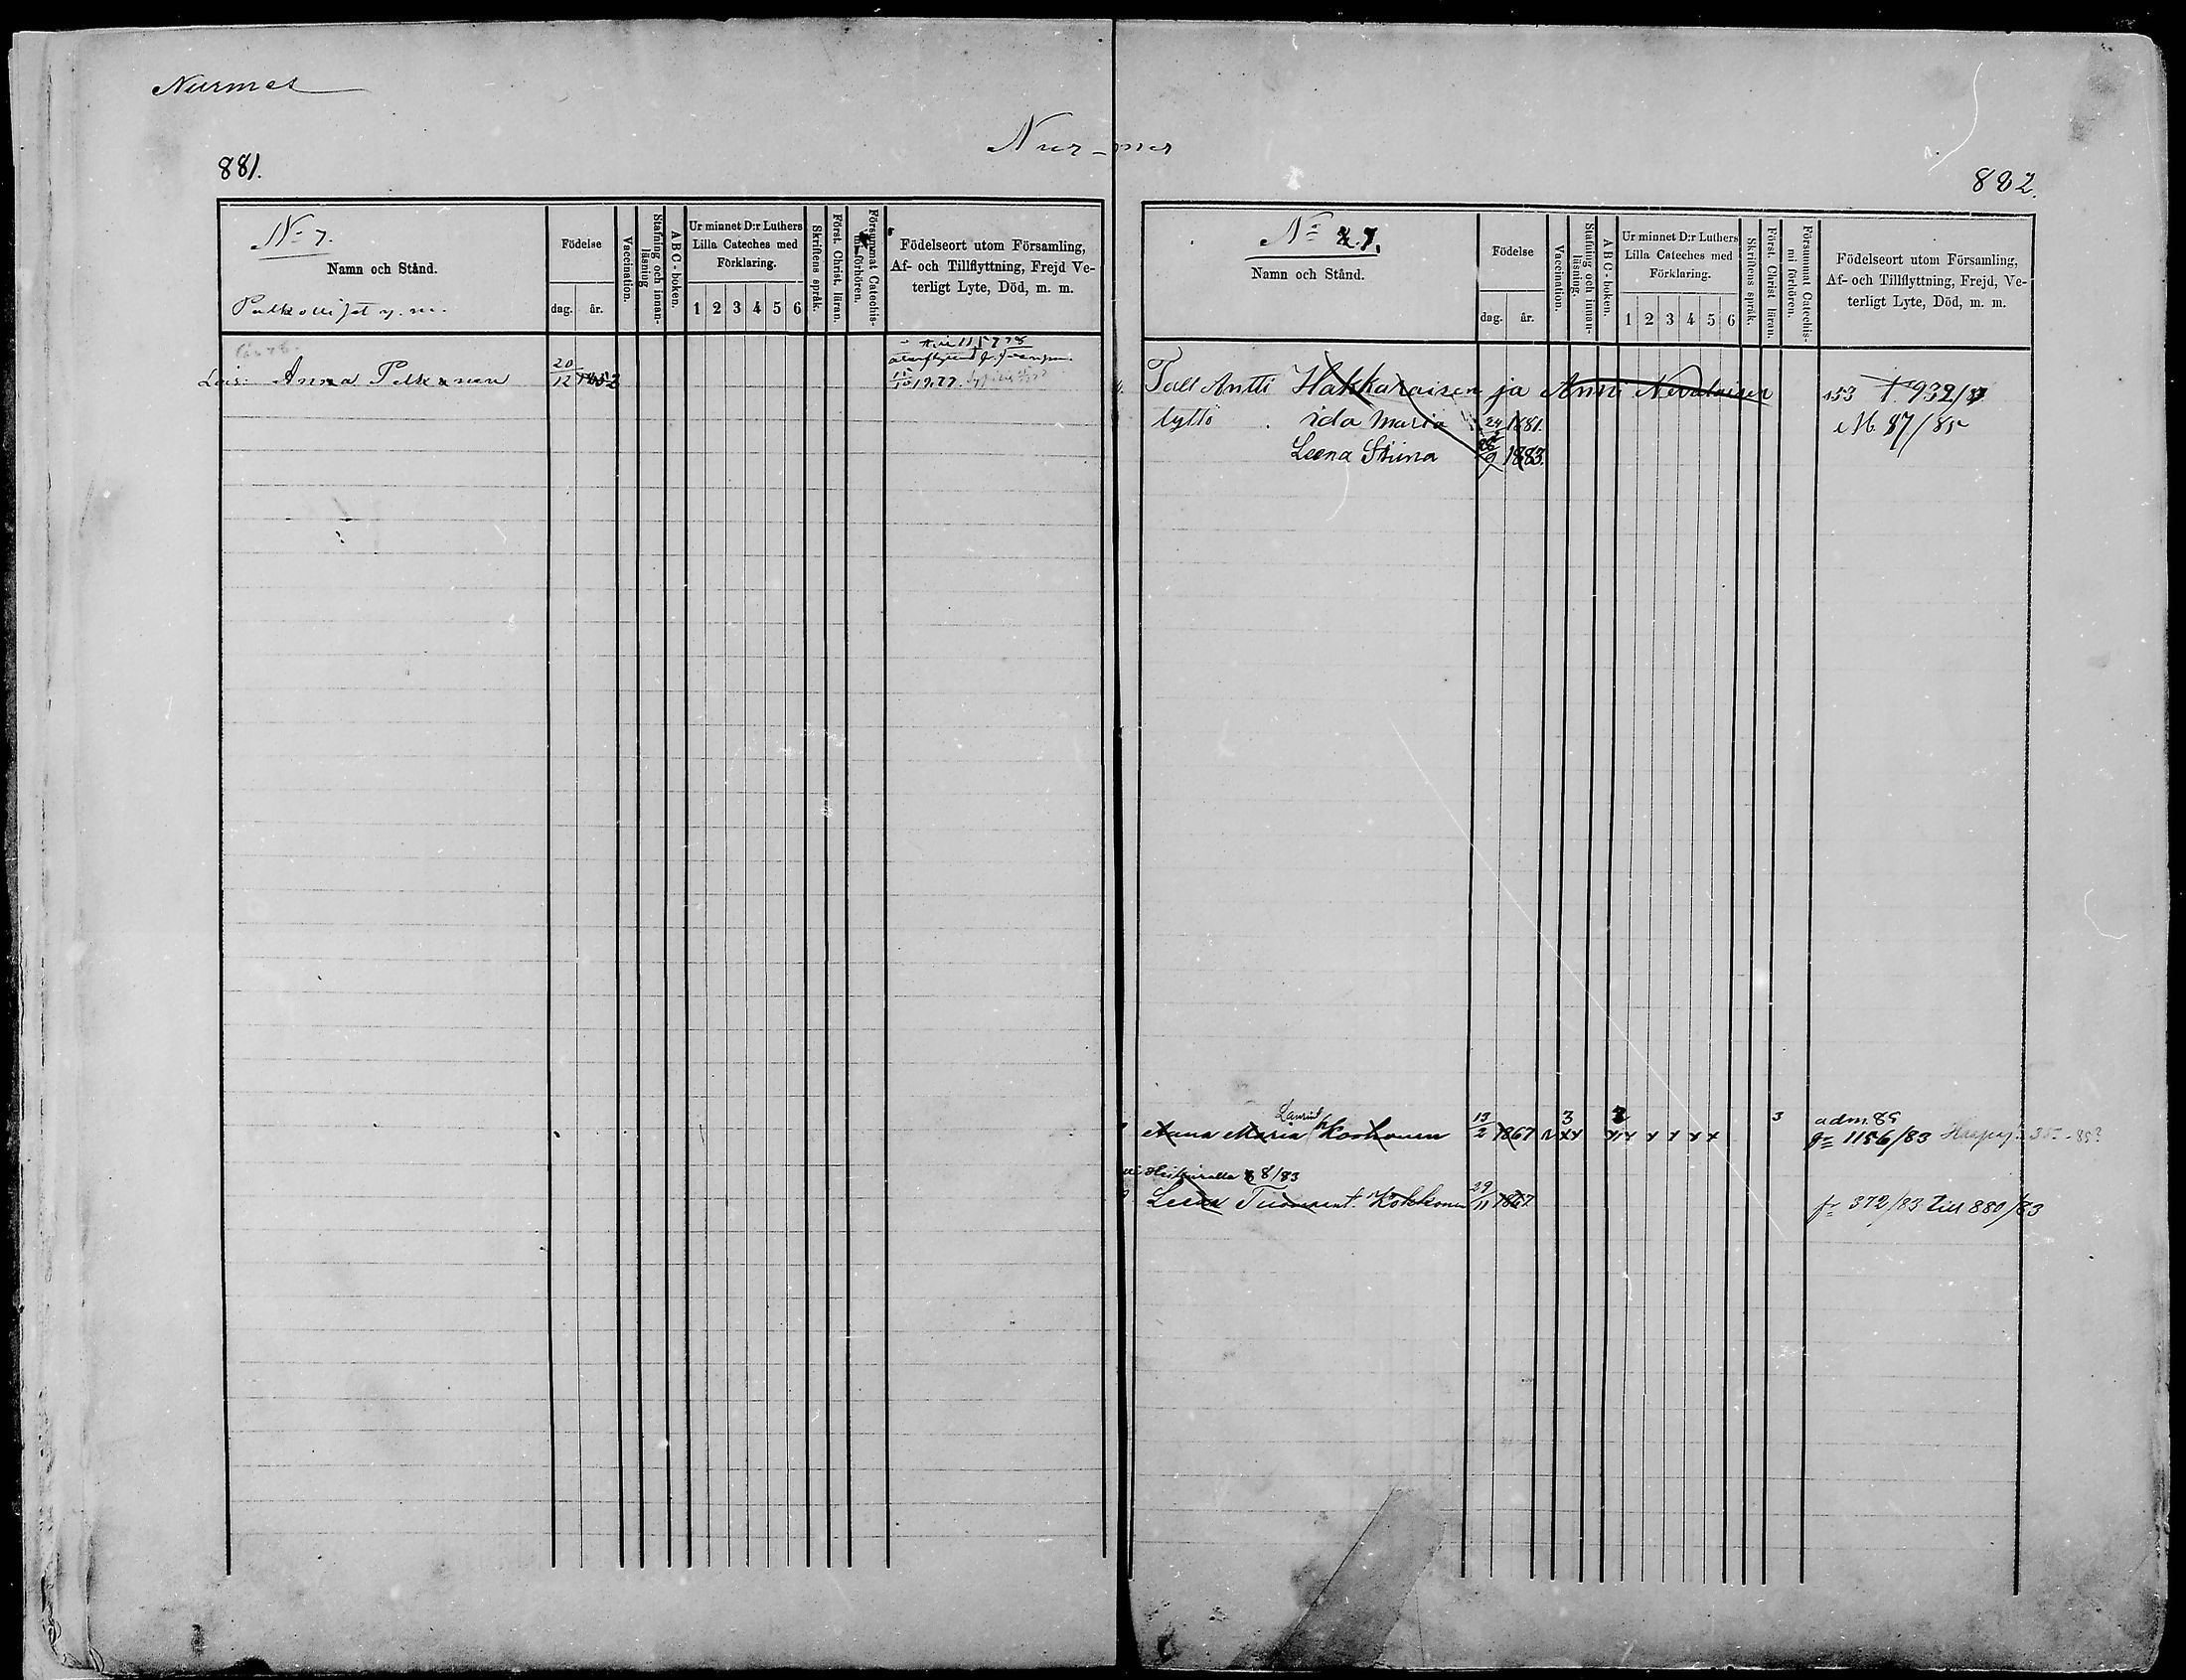 Nurmes
Nur-mes
881.
No 7.
Namn och Stånd.
Födelse
dag.
år.
Vaccination.
Stafning och innan-läsning
ABC-boken.
Ur minnet D:r Luthers
Lilla Cateches med
Förklaring.
1 2 3 4 5 6
Skriftens språk.
Först. Christ. läran.
Försummat Catechis-mi förhören.
Födelseort utom Församling,
Af- och Tillflyttning, Frejd Ve-
terligt Lyte, Död, m. m.
Anna 20/12 1852
882.
No 7.
Namn och Stånd.
Födelse
dag.
år.
Vaccination.
Stafning och innan-läsning.
ABC-boken.
Ur minnet D:r Luthers
Lilla Cateches med
Förklaring.
1 2 3 4 5 6
Skriftens språk.
Först. Christ läran.
Försummat Catechis-mi förhören.
Födelseort utom Församling,
Af- och Tillflyttning, Frejd, Ve-
terligt Lyte, Död, m. m.
Antti Hakkaraisen ja Anni Nevalaisen
tyttö ida Maria 1881. 87/85
Leena Stiina 1883.
Laurint.
3 3 adm. 85
Anna Maria Korhonen 13/2 1867 1156/83
8/83
Leena Kokkonen 29/11 1867 fr 372/83 till 880/83